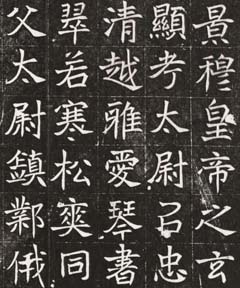 景穆皇帝之玄
顯考太尉召忠
清越雅愛琴書
翠若寒松爽同
父太尉鎮鄴俄